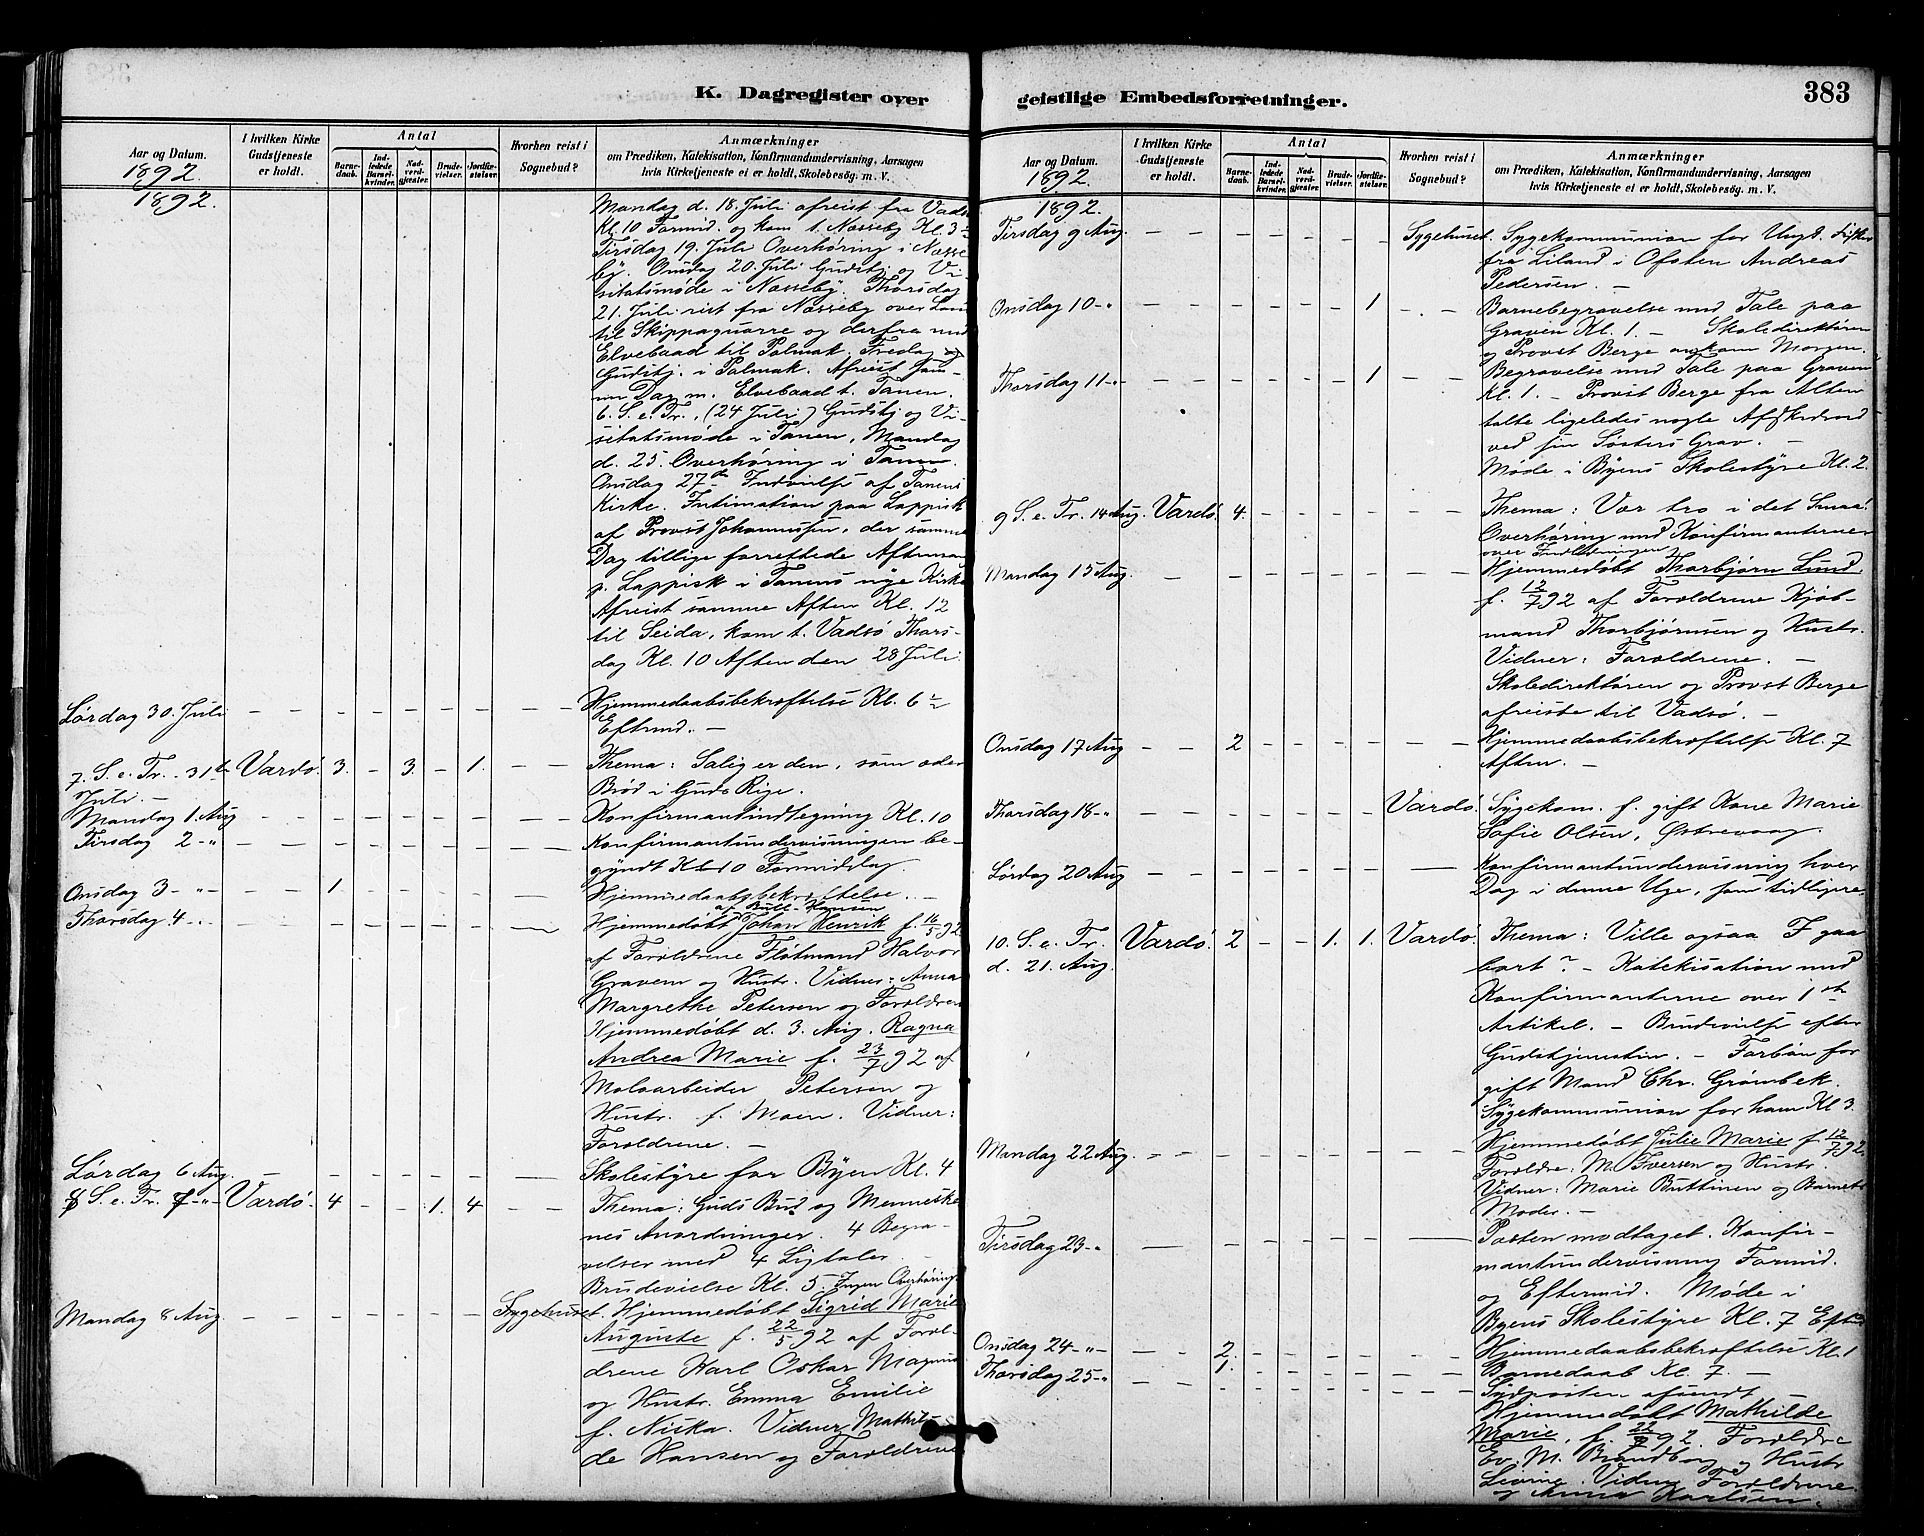 K. Dagregister over
Aar og Datum.
1892.
I hvilken Kirke
Gudstjeneste
er holdt.
Antal
Barne-
daab.
Ind-
ledede
Barsel-
kvinder.
Nad-
verd-
gjester.
Brude-
vielser.
Jordfæ-
stelser.
Hvorhen reist i
Sognebud?
Anmærkninger
om Prædiken, Katekisation, Konfirmandundervisning, Aarsagen
hvis Kirketjeneste ei er holdt, Skolebesøg. m. V.
1892.
Mandag d. 18. Juli afreist fra Vadsø
Kl. 10 Formid. og kom t. Næsseby Kl. 3
Tirsdag 19. Juli Overhøring i Næsse
by. Onsdag 20. Juli Gudstj og Vi-
sitatsmøde i Næsseby. Thorsdag
21. Juli reist fra Næsseby over Land
til Skippaguarre og derfra med
Elvebaad til Polmak. Fredag
Gudstj. i Polmak. Afreist sam-
me Dag m. Elvebaad t. Tanen.
6. S. e. Tr. (24 Juli) Gudstj og Vi-
sitatsmøde i Tanen, Mandag
d. 25. Overhøring i Tanen.
Onsdag 27de Indvielse af Tanens
Kirke. Intimation paa Lappisk
af Provst Johannessen, der samme
Dag tillige forrettede Aftensang
p. Lappisk i Tanens nye Kirke
Afreist samme Aften Kl. 12
til Seida, kom t. Vadsø Thors-
dag Kl. 10 Aften den 28 Juli.
Lørdag 30. Juli - - - - - - - - - Hjemmedaabsbekræftelse Kl. 6
Eftmd. -
7. S. e. Tr. 31te Vardø. 3. - 3. - 1. - - Thema: Salig er den, som æder
Juli. - Brød i Guds Rige.
Mandag 1. Aug - - - - - - - - - Konfirmantindtegning Kl. 10
Tirsdag 2 -"- - - - - - - - - - Konfirmantundervisningen be-
gyndt Kl 10 Formiddag.
Onsdag 3 -"- - - 1. - - - - - - Hjemmedaabsbekræftelse. -
Thorsdag 4 -.. - - - - - - - - af Bull-Hansen
Hjemmedøbt Johan Henrik f. 16/5 92
af Forældrene Fløtmand Halvor
Gravem og Hustr. Vidner: Anna
Margrethe Petersen og Forældren
Hjemmedøbt d. 3. Aug. Ragna
Andrea Marie f. 23/7 92 af
Moloarbeider Petersen og
Hustr. f. Moen. Vidner:
Forældrene. -
Lørdag 6 Aug. - - - - - - - - Skolestyre for Byen Kl. 4
8 S. e. Tr. 7 -"- Vardø. 4 - - 1. 4 - - Thema: Guds Bud og Menneske
nes Anordninger. 4 Begra-
velser med 4 Ligtaler. -
Brudevielse Kl. 5. Ingen Overhøring.
Mandag 8 Aug. - - - - - - - Sygehuset. Hjemmedøbt Sigrid Marie
Auguste f. 22/5 92 af Foræl-
drene Karl Oskar Magnus
og Hustr. Emma Emilie
f. Niska. Vidner Mathil-
de Hansen og Forældrene
geistlige Embedsforretninger.
383
Aar og Datum.
1892.
I hvilken Kirke
Gudstjeneste
er holdt.
Antal
Barne-
daab.
Ind-
ledede
Barsel-
kvinder.
Nad-
verd-
gjester.
Brude-
vielser.
Jordfæ-
stelser.
Hvorhen reist i
Sognebud?
Anmærkninger
om Prædiken, Katekisation, Konfirmandundervisning, Aarsagen
hvis Kirketjeneste ei er holdt, Skolebesøg. m. V.
1892.
Tirsdag 9 Aug. - - - - - - - Sygehuset. Sygekommunion for Ungk. Fisker
fra Liland i Ofoten Andreas
Pedersen. -
Onsdag 10 -" - - - - - - 1 - . - Barnebegravelse med Tale paa
Graven Kl. 1. - Skoledirektøren
og Provst Berge ankom Morgen.
Thorsdag 11 -" - - - - - - 1 - - Begravelse med Tale paa Graven
Kl. 1. - Provst Berge fra Alten
talte ligeledes nogle Afskedsord
ved sin Søsters Grav. -
Møde i Byens Skolestyre Kl. 2.
9 S. e. Tr. 14 Aug. Vardø. 4. - - - - - - Thema: Vær tro i det Smaa!
Overhøring med Konfirmanterne
over Indledningen
Mandag 15 Aug. - - - - - - - - Hjemmedøbt Thorbjørn Lund
f. 12/7 92 af Forældrene Kjøb-
mand Thorbjørnsen og Hustr.
Vidner: Forældrene. -
Skoledirektøren og Provst Berge
afreiste til Vadsø. -
Onsdag 17 Aug - - 2 - - - - - - Hjemmedaabsbekræftelse Kl. 7
Aften. -
Thorsdag 18 -" - - - - - - - Vardø. Sygekom. f. gift Kone Marie
Sofie Olsen, Østrevaag.
Lørdag 20 Aug - - - - - - - - Konfirmantundervisning hver
Dag i denne Uge, som tidligere.
10. S. e. Tr. Vardø. 2 - - 1. 1. Vardø. Thema: Ville ogsaa I gaa
d. 21. Aug. bort? - Katekisation med
Konfirmanterne over 1ste
Artikel. - Brudevielse efter
Gudstjenesten. - Forbøn for
gift Mand Chr. Grønbek.
Sygekommunion for ham Kl 3.
Mandag 22 Aug. - - - - - - - - Hjemmedøbt Julie Marie f. 12/7 92.
Forældre: M. Iversen og Hustr.
Vidner: Marie Buttinen og Barnets
Moder. -
Tirsdag 23 -" - - - - - - - Posten modtaget. Konfir-
mantundervisning Formid.
og Eftermid. Møde i
Byens Skolestyre Kl. 7 Eftmd
Onsdag 24 -"- - - 2. - - - - - - Hjemmedaabsbekræftelse Kl. 1
Thorsdag 25 -" - - 1. - - - - - - Barnedaab Kl. 7. -
Sydposten afsendt -
Hjemmedøbt Mathilde
Marie, f. 22/7 92. Forældre
Ev. M. Brandborg og Hustr
Levine. Vidner Forældrene
og Anna Karlsen.